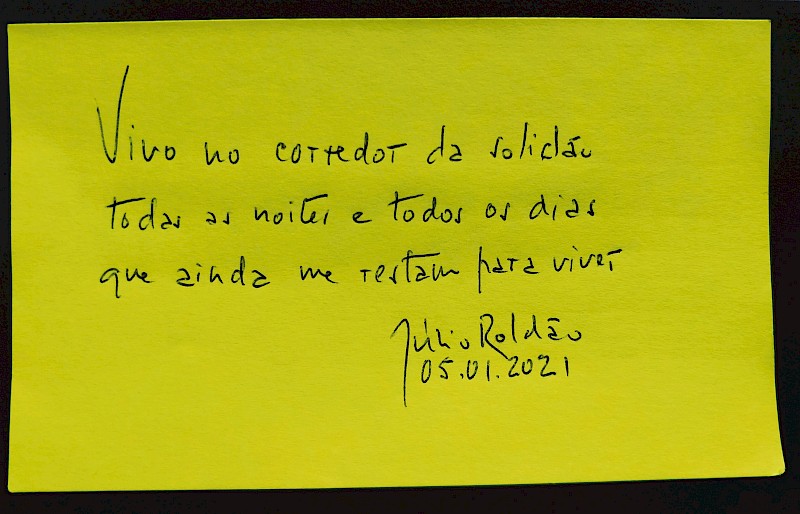 Vivo no corredor da solidão
todas as noites e todos os dias
que ainda me restam para viver
Júlio Roldão
05.01.2021